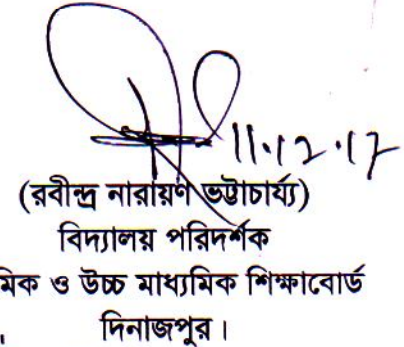 11.12.17
(রবীন্দ্র নারায়ণ ভট্টাচার্য্য)
বিদ্যালয় পরিদর্শক
মিক ও উচ্চ মাধ্যমিক শিক্ষাবোর্ড
দিনাজপুর।